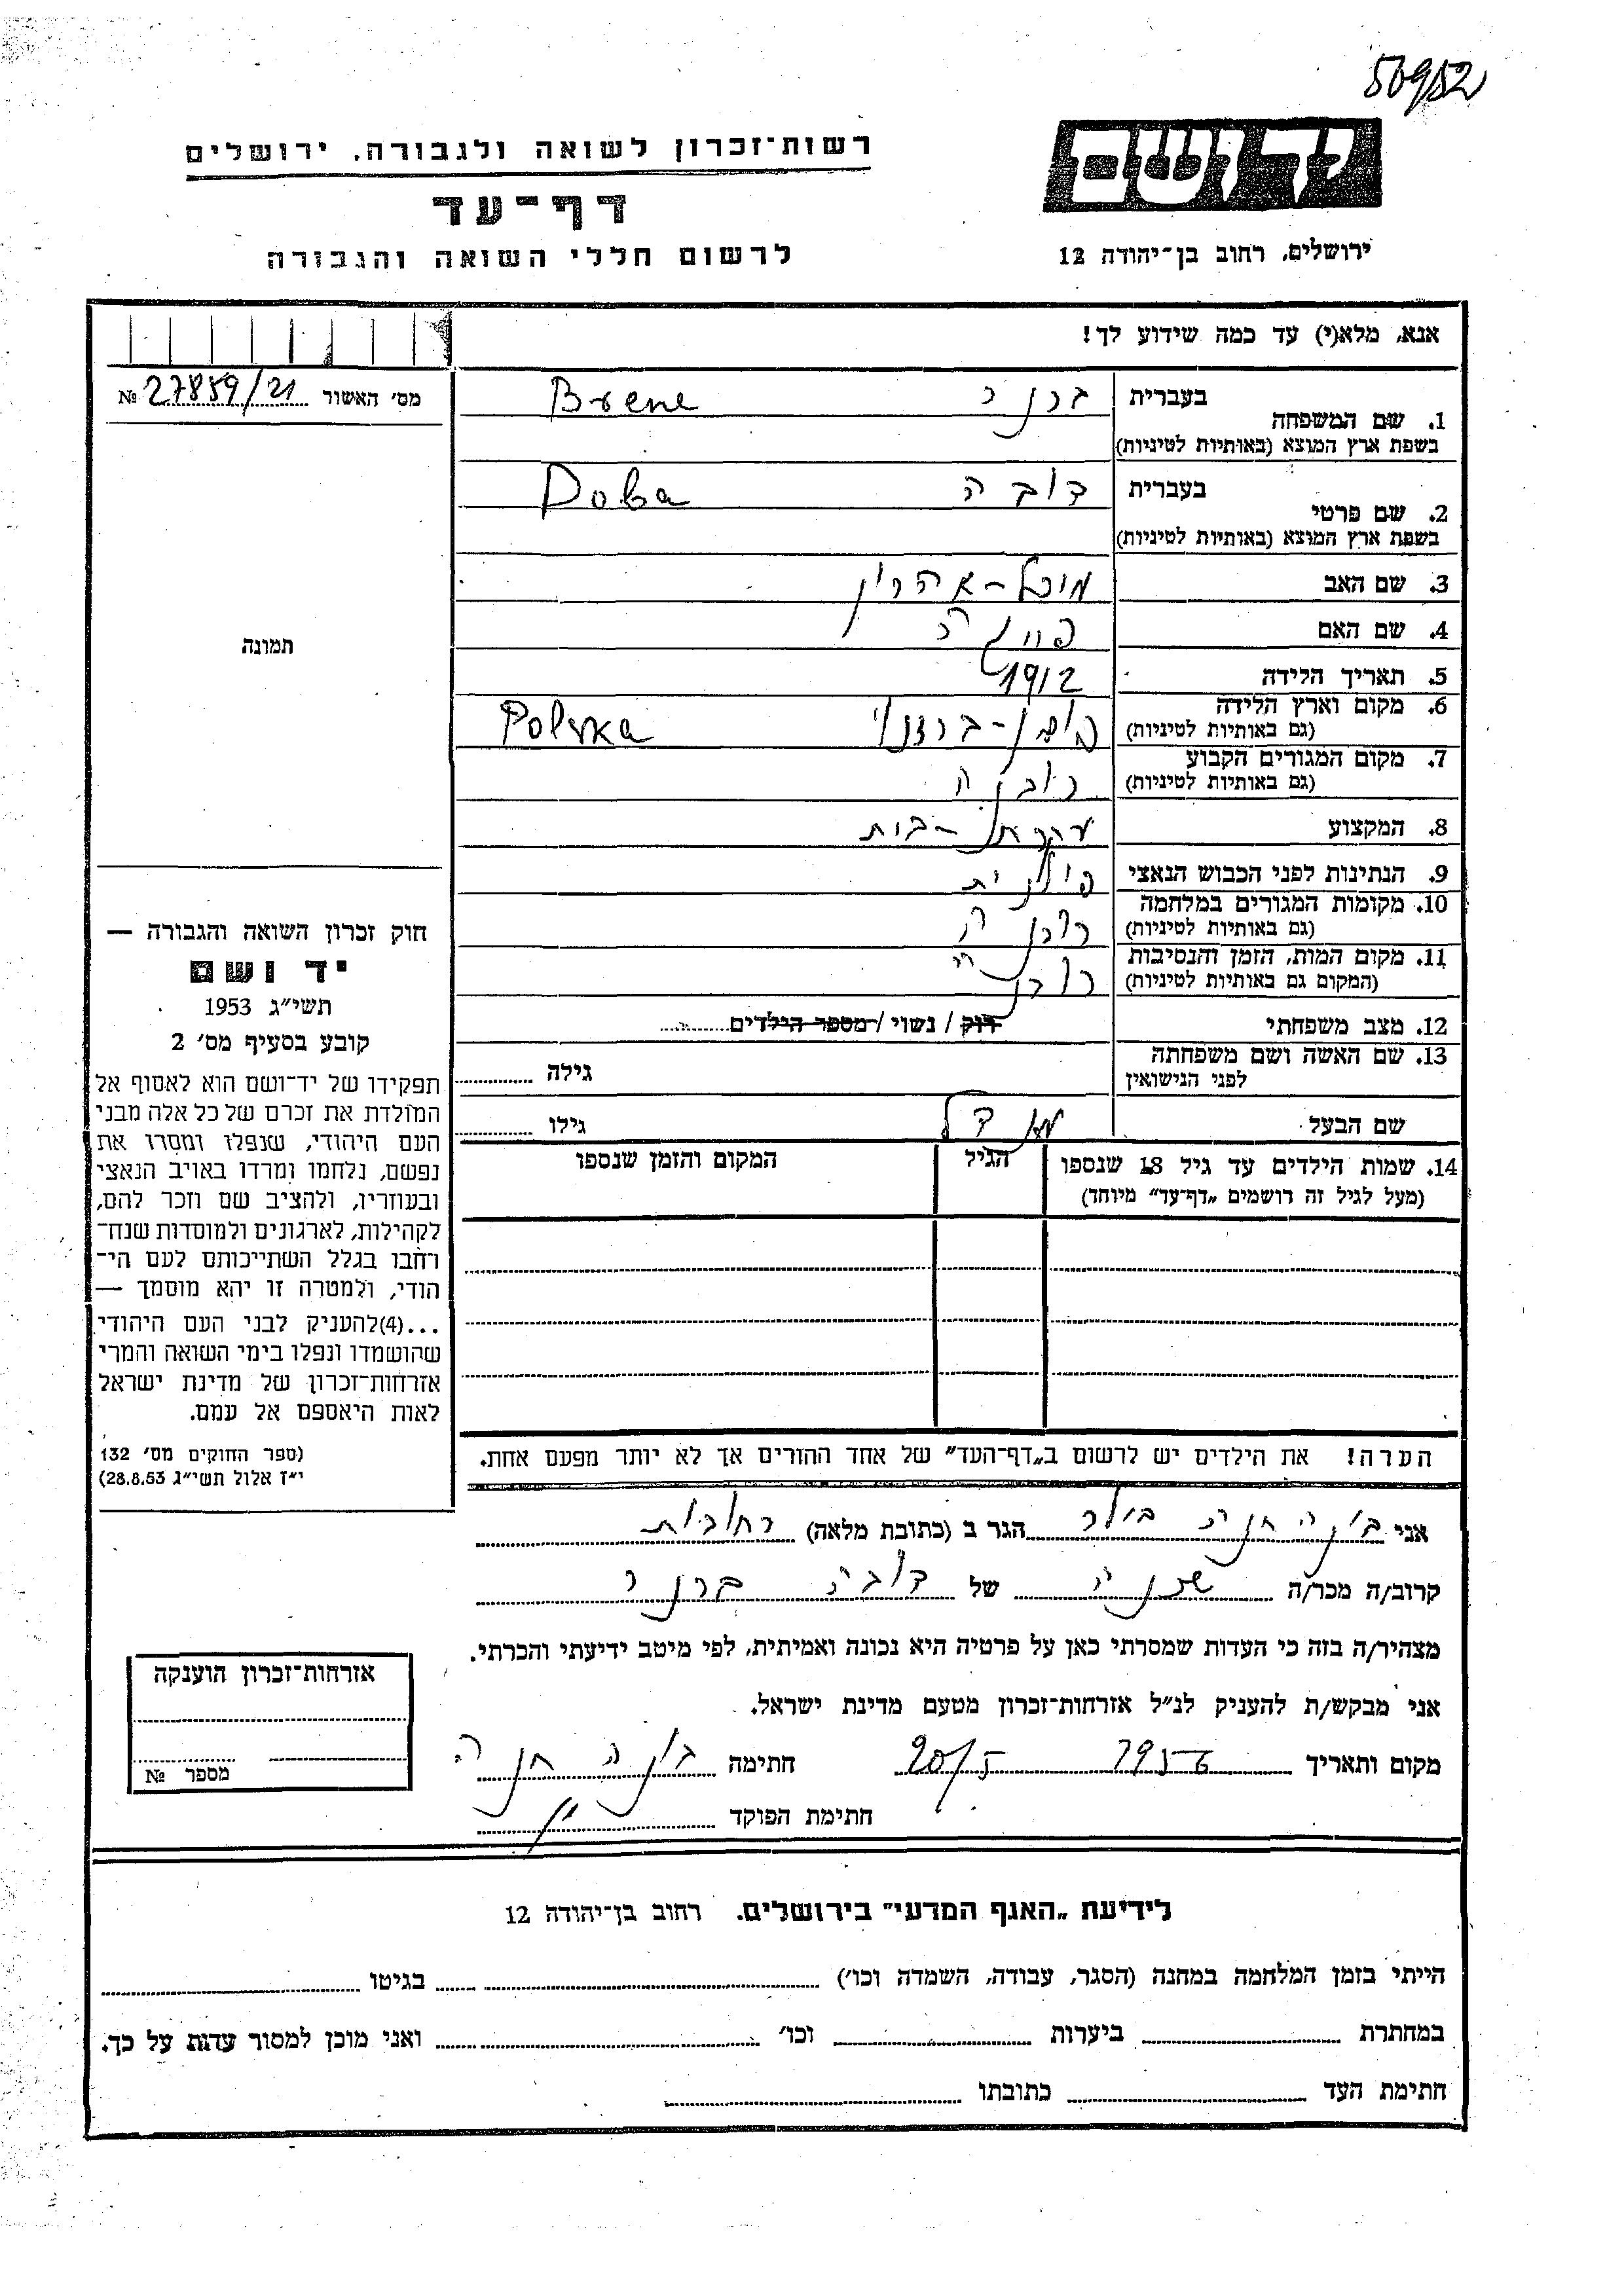 50952
יד ושם
רשות־זכרון לשואה ולגבורה, ירושלים
דף־עד
לרשום חללי השואה והגבורה
ירושלים, רחוב בן־יהודה 12
אנא, מלא(י) עד כמה שידוע לך!
מס׳ האשור 27859/21 №
1. שם המשפחה
בעברית ברנר Brene
בשפת ארץ המוצא (באותיות לטיניות)
2. שם פרטי
בעברית דובה Doba
בשפת ארץ המוצא (באותיות לטיניות)
3. שם האב מיכל-אהרון
4. שם האם
5. תאריך הלידה 1912
6. מקום וארץ הלידה Polska
(גם באותיות לטיניות)
7. מקום המגורים הקבוע רובנה
(גם באותיות לטיניות)
8. המקצוע עקרת-בית
9. הנתינות לפני הכבוש הנאצי פולנית
10. מקומות המגורים במלחמה רובנה
(גם באותיות לטיניות)
11. מקום המות, הזמן והנסיבות רובנה
(המקום גם באותיות לטיניות)
12. מצב משפחתי רוק / נשוי / מספר הילדים
13. שם האשה ושם משפחתה
לפני הנישואין
גילה
שם הבעל מנדל גילו
14. שמות הילדים עד גיל 18 שנספו
(מעל לגיל זה רושמים „דף־עד״ מיוחד)
הגיל
המקום והזמן שנספו
הערה! את הילדים יש לרשום ב„דף־העד״ של אחד ההורים אך לא יותר מפעם אחת.
תמונה
חוק זכרון השואה והגבורה —
יד ושם
תשי״ג 1953
קובע בסעיף מס׳ 2
תפקידו של יד־ושם הוא לאסוף אל
המולדת את זכרם של כל אלה מבני
העם היהודי, שנפלו ומסרו את
נפשם, נלחמו ומרדו באויב הנאצי
ובעוזריו, ולהציב שם וזכר להם,
לקהילות, לארגונים ולמוסדות שנח־
רחבו בגלל השתייכותם לעם הי־
הודי, ולמטרה זו יהא מוסמך —
...(4)להעניק לבני העם היהודי
שהושמדו ונפלו בימי השואה והמרי
אזרחות־זכרון של מדינת ישראל
לאות היאספם אל עמם.
(ספר החוקים מס׳ 132
י״ז אלול תשי״ג 28.8.53)
אני חנה הגר ב (כתובת מלאה) רחובות
קרוב/ה מכר/ה שכנה של דובה ברנר
מצהיר/ה בזה כי העדות שמסרתי כאן על פרטיה היא נכונה ואמיתית, לפי מיטב ידיעתי והכרתי.
אני מבקש/ת להעניק לנ״ל אזרחות־זכרון מטעם מדינת ישראל.
מקום ותאריך 1956 20/5 חתימה חנה
חתימת הפוקד
אזרחות־זכרון הוענקה
מספר №
לידיעת „האגף המדעי״ בירושלים. רחוב בן־יהודה 12
הייתי בזמן המלחמה במחנה (הסגר, עבודה, השמדה וכו׳) בגיטו
במחתרת ביערות וכו׳ ואני מוכן למסור עדות על כך.
חתימת העד כתובתו